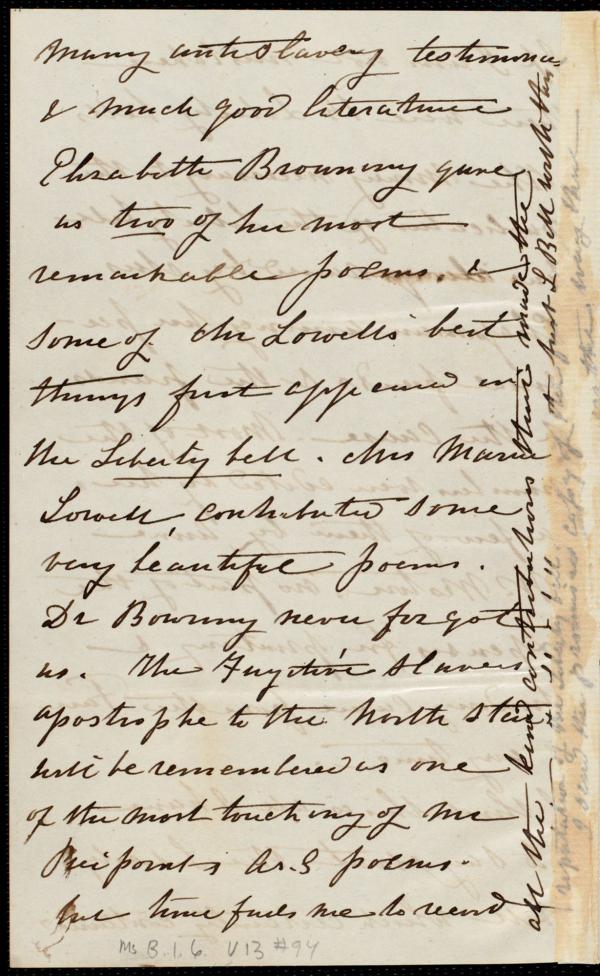 many antislavery testimonies
& much good literature
Elizabeth Browning gave
us two of her most
remarkable poems. &
some of Mr Lowells' best
things first appeared in
the Liberty bell. Mrs Maria
Lowell, contributed some
very beautiful poems.
Dr Bowring never forgot
us. The Fugitive Slaves
apostrophe to the North Star
will be remembered as one
of the most touching of Mr
Pierponts A.S poems.
but time fails me to record
all the kind contributions that made the
Ms B.1.6. V13 #94